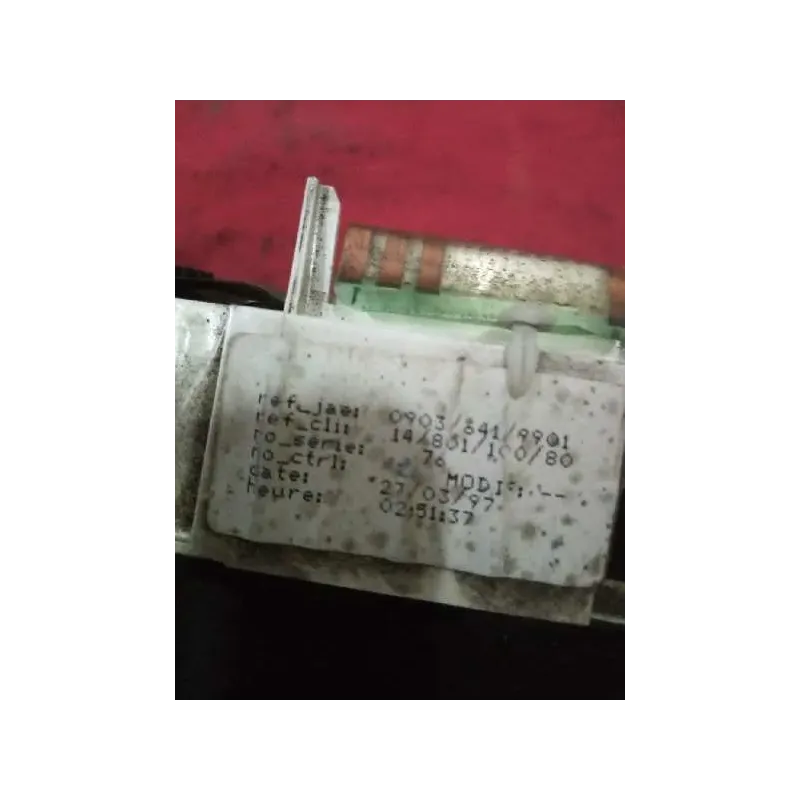 ref_jae: 0903/641/9901
ref_cli: 14/801/100/80
no_serie: 76
no_ctrl: 2 MODIF: --
date: 27/03/97
heure: 02:51:37